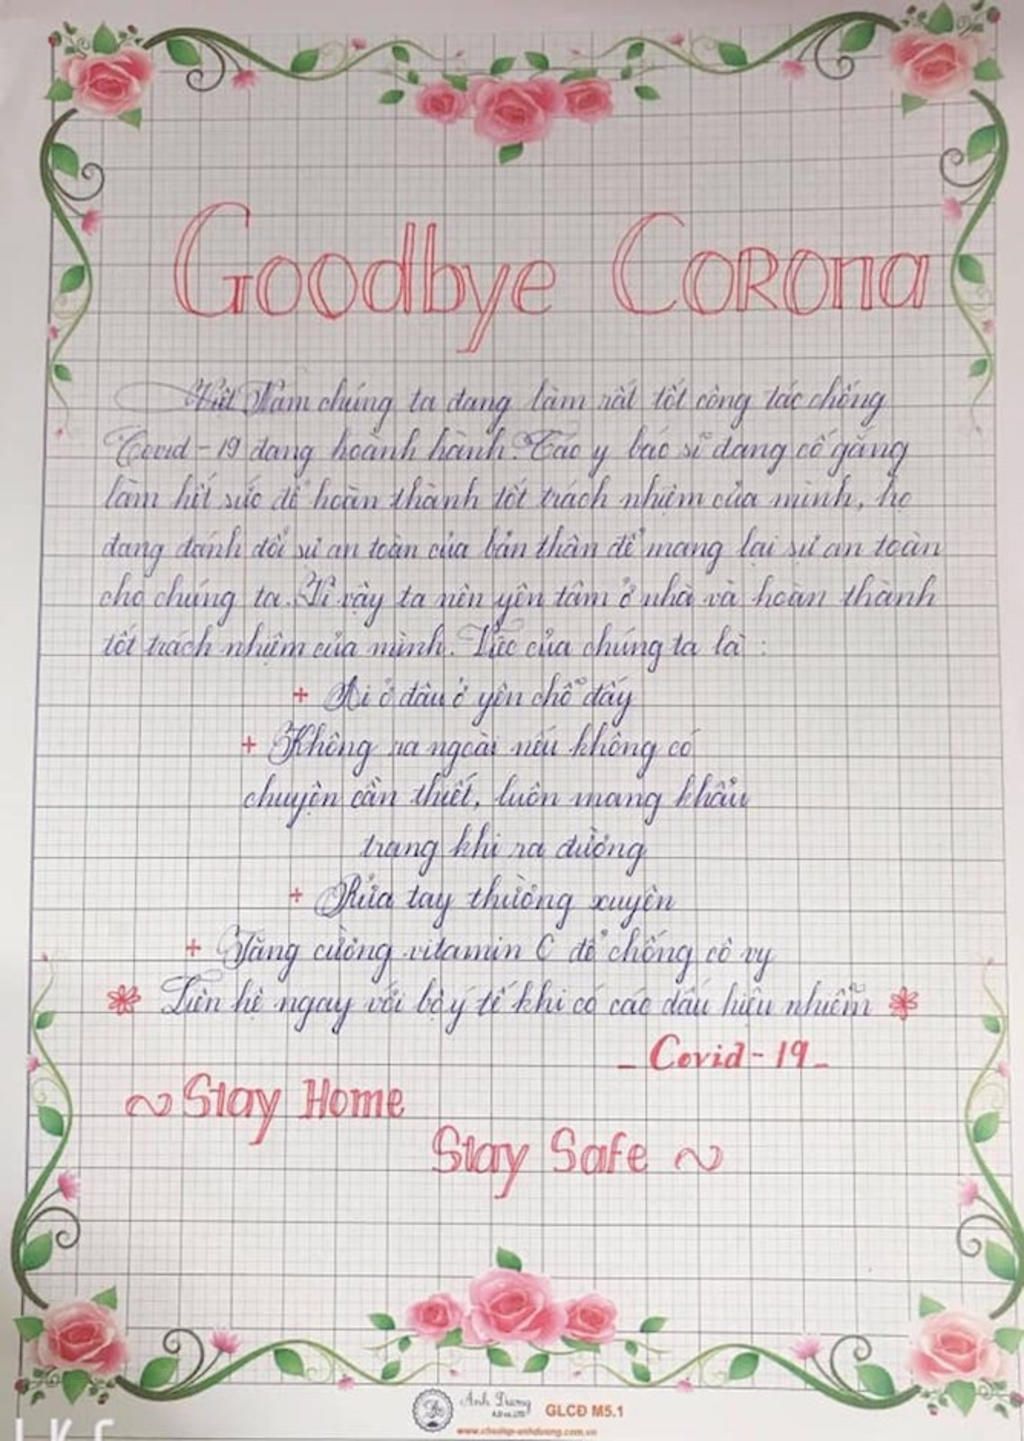 Goodbye Corona
Việt Nam chúng ta đang làm rất tốt công tác chống
Covid-19 đang hoành hành. Các y bác sĩ đang cố gắng
làm hết sức để hoàn thành tốt trách nhiệm của mình, họ
đang đánh đổi sự an toàn của bản thân để mang lại sự an toàn
cho chúng ta. Vì vậy ta nên yên tâm ở nhà và hoàn thành
tốt trách nhiệm của mình. Việc của chúng ta là :
+ Ai ở đâu ở yên chỗ đấy
+ Không ra ngoài nếu không có
chuyện cần thiết, luôn mang khẩu
trang khi ra đường
+ Rửa tay thường xuyên
+ Tăng cường vitamin C để chống cô vy
Liên hệ ngay với bộ y tế khi có các dấu hiệu nhiễm
_ Covid-19_
~ Stay Home
Stay Safe ~
Ánh Dương GLCĐ M5.1
www.chudep-anhduong.com.vn